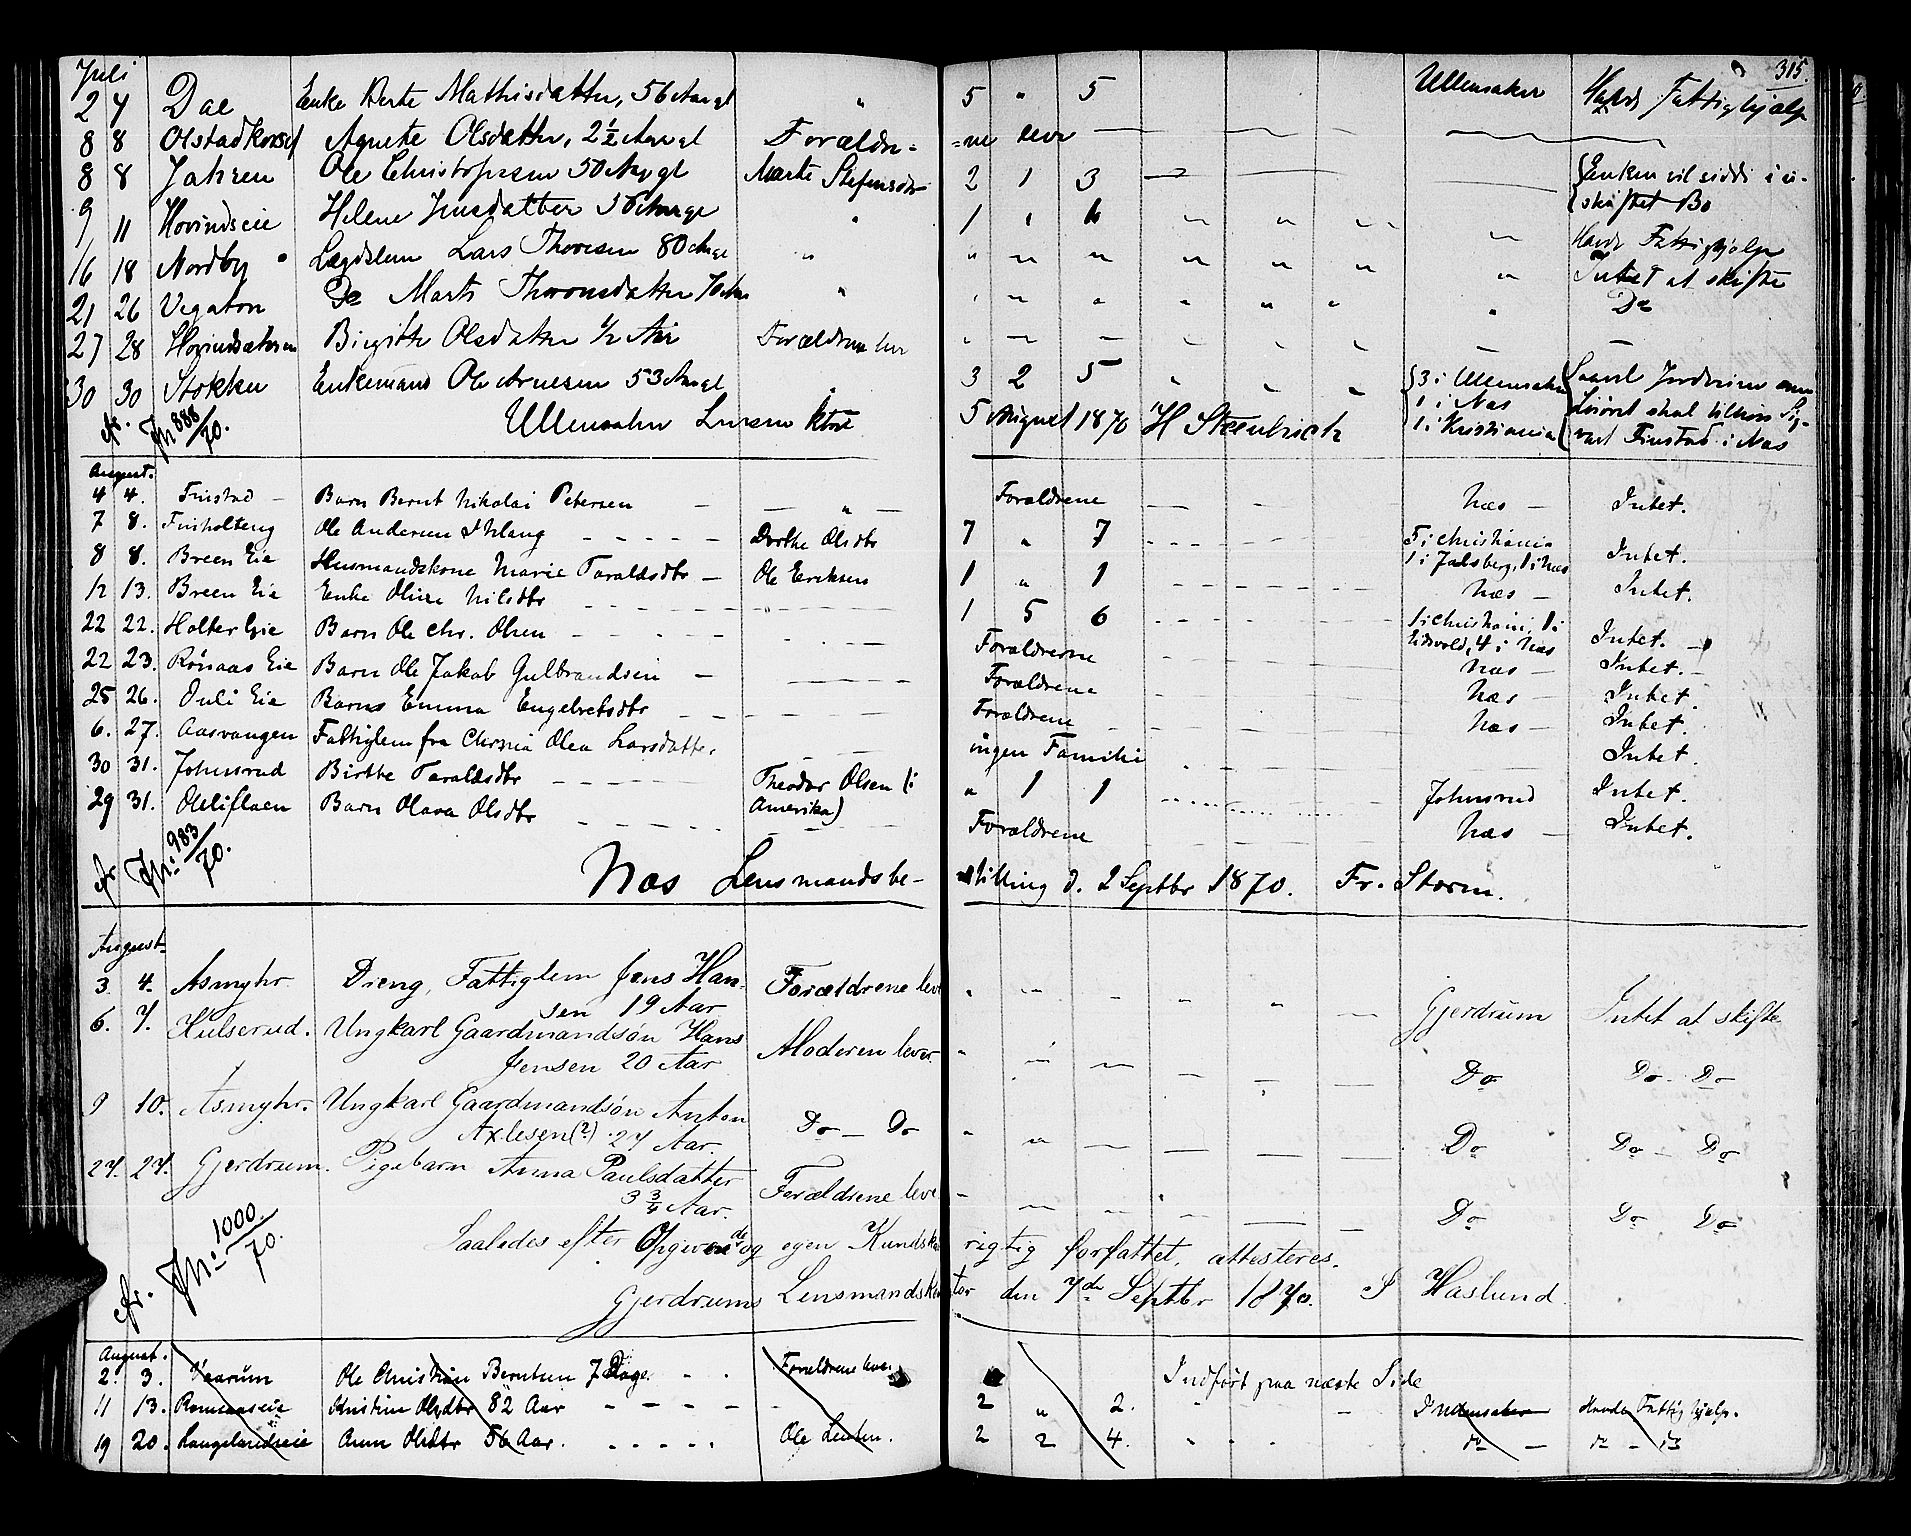 Juli 315.
2 4 Dal Enke Berte Mathisdatter, 56 Aar gl " 5 " 5 Ullensaker Havde Fattighjælp
8 8 Olstadkorset Agnete Olsdatter, 2½ Aar gl Forældre- =ne leve
8 8 Jahren Ole Christophersen 50 Aar gl Marte Stefensdr 2 1 3 Enken vil sidde i u-
skiftet Bo
9 11 Hovindseie Helene Jensdatter 56 Aar gl " 1 "
Havde Fattighjælp
16 18 Nordby Lægdslem Lars Thoresen 80 Aar gl " " " " " " " " Intet at skifte
21 26 Vegaton Do Marte Thoresdatter 70 Aar " " " " " " " " Do
27 28 Hovindsætren Birgitte Olsdatter 1/2 Aar Forældrene lever
30 30 Stokker Enkemand Ole Arnesen 53 Aar gl " 3 2 5 " " " 3 i Ullensaker
1 i Næs
1 i Kristiania
Fr. Jn. 888/70. Ullensaker Lensm ktor 5 August 1870 H Steenbuch
vard Finstad i Næs
August.
4 4. Finstad - Barn Bernt Nikolai Petersen - - " - Forældrene Næs - Intet.
7 8. Finholteng Ole Andersen Dorthe Olsdtr 7 " 7 5 i Christiania
1 i , 1 i Næs Intet.
8 8. Breen Eie Husmandskone Marie Taraldsdtr - Ole Eriksen 1 " 1 Næs - Intet.
12 13. Breen Eie Enke Oline Nilsdtr " 1 5 6 1 i Christiania, 1 i
Eidsvold, 4 i Næs Intet. -
22 22. Holter Eie Barn Ole Chr. Olsen Forældrene Næs - Intet. -
22 23. Rönaas Eie Barn Ole Jakob Gulbrandsen - Forældrene Næs - Intet.
25 26. Ouli Eie Barns Emma Engebretsdtr Forældrene Næs - Intet.
6. 27. Aasvangen Fattiglem fra Chrnia Olea Larsdatter ingen Familie Intet.
30 31. Johnsrud Birthe Taraldsdtr Theodor Olsen (i
Amerika) " 1 1 Johnsrud Intet.
29 31. Barn Olava Olsdtr Forældrene Næs - Intet.
Fr. Jn. 983/70. Næs Lensmandsbe- stilling d. 2 Septbr 1870. Fr. Storm.
August
3. 4. Asmyhr Dreng, Fattiglem Jens Han-
sen 19 Aar Forældrene leve Gjerdrum Intet at skifte
6. 7. Hulserud. Ungkarl Gaardmandsøn Hans
Jensen 20 Aar Moderen lever Do Do - Do
9 10. Asmyhr. Ungkarl Gaardmandsøn Anton
Axlesen (?) 27 Aar. Do - Do Do Do - Do
27. 27. Gjerdrum. Pigebarn Anna Paulsdatter
3 3/4 Aar. Forældrene leve Do Do Do
Fr. Jn. 1000/70. Saaledes efter Opgivende og egen Kundskab rigtig forfattet, attesteres.
Gjerdrums Lensmandskontor den 7de Septbr 1870. S Haslund
August.
2. 3. Vaarum Ole Christian Berntsen 7 Dage. Forældrene lever Indfört paa næste Side
11 13. Romsaaseie Kristine Olsdtr 82 Aar 2 " 2. Ullensaker Havde Fattighjelp.
19 20. Langelandseie Anne Olsdtr 56 Aar. Ole Larsen. 2 2 4. do - do -